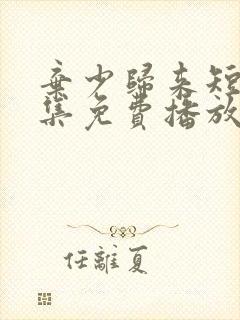 棄少歸來短
集免費播放
任離夏